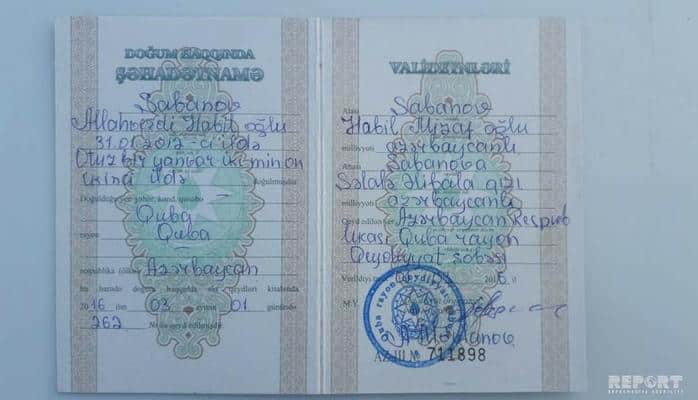 DOĞUM HAQQINDA
ŞƏHADƏTNAMƏ
Şabanov
Allahverdi Habil oğlu
31.01.2012-ci ildə
Otuz bir yanvar iki min on
ikinci ildə doğulmuşdur
Doğulduğu yer: şəhər, kənd, qəsəbə
Quba
rayon Quba
respublika (ölkə) Azərbaycan
bu barədə doğum haqqında akt qeydləri kitabında
2016 ilin 03 ayının 01 günündə
262 № ilə qeyd edilmişdir.
VALİDEYNLƏRİ
Atası Şabanov
Habil oğlu
milliyyəti azərbaycanlı
Anası Şabanova
Səlalə Əlibala qızı
milliyyəti azərbaycanlı
Qeyd edilən yer Azərbaycan Respub
likası Quba rayon
Qeydiyyat şöbəsi
M.Y.
AZ-III № 711898
REPORT